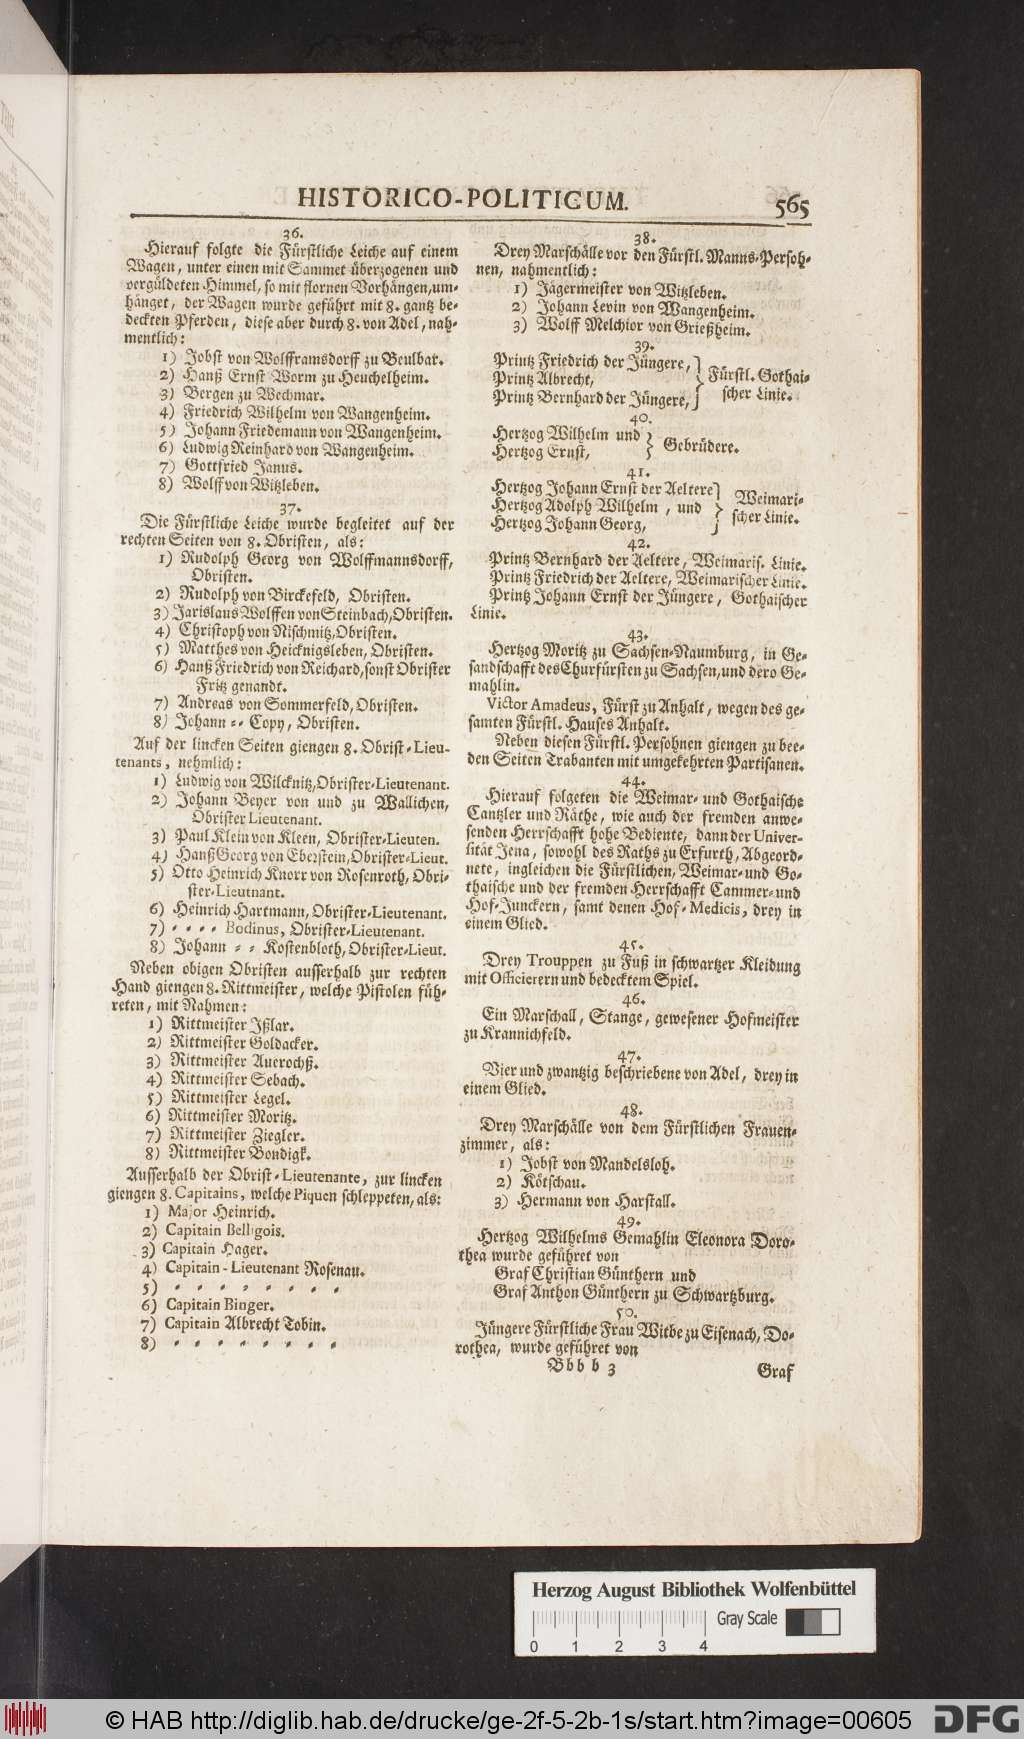 HISTORICO-POLITICUM. 565
36.
Hierauf folgte die Fürstliche Leiche auf einem
Wagen, unter einen mit Sammet überzogenen und
vergüldeten Himmel, so mit flornen Vorhängen, um-
hänget, der Wagen wurde geführt mit 8. gantz be-
deckten Pferden, diese aber durch 8. von Adel, nah-
mentlich:
1) Jobst von Wolfframsdorff zu Beulbar.
2) Hanß Ernst Worm zu Heuchelheim.
3) Bergen zu Wechmar.
4) Friedrich Wilhelm von Wangenheim.
5) Johann Friedemann von Wangenheim.
6) Ludwig Reinhard von Wangenheim.
7) Gottfried Janus.
8) Wolff von Witzleben.
37.
Die Fürstliche Leiche wurde begleitet auf der
rechten Seiten von 8. Obristen, als:
1) Rudolph Georg von Wolffmannsdorff,
Obristen.
2) Rudolph von Birckefeld, Obristen.
3) Jarislaus Wolffen von Steinbach, Obristen.
4) Christoph von Nischmitz, Obristen.
5) Matthes von Heicknigsleben, Obristen.
6) Hanß Friedrich von Reichard, sonst Obrister
Fritz genandt.
7) Andreas von Sommerfeld, Obristen.
8) Johann = = Copy, Obristen.
Auf der lincken Seiten giengen 8. Obrist-Lieu-
tenants, nehmlich:
1) Ludwig von Wilcknitz, Obrister-Lieutenant.
2) Johann Beyer von und zu Wallichen,
Obrister Lieutenant.
3) Paul Klein von Kleen, Obrister-Lieuten.
4) Hanß Georg von Eberstein, Obrister-Lieut.
5) Otto Heinrich Knorr von Rosenroth, Obri-
ster-Lieutnant.
6) Heinrich Hartmann, Obrister-Lieutenant.
7) = = = = Bodinus, Obrister-Lieutenant.
8) Johann = = Kostenbloth, Obrister-Lieut.
Neben obigen Obristen ausserhalb zur rechten
Hand giengen 8. Rittmeister, welche Pistolen füh-
reten, mit Nahmen:
1) Rittmeister Ißlar.
2) Rittmeister Goldacker.
3) Rittmeister Auerochß.
4) Rittmeister Sebach.
5) Rittmeister Legel.
6) Rittmeister Moritz.
7) Rittmeister Ziegler.
8) Rittmeister Bondigk.
Ausserhalb der Obrist-Lieutenante, zur lincken
giengen 8. Capitains, welche Piquen schleppeten, als:
1) Major Heinrich.
2) Capitain Belligois.
3) Capitain Hager.
4) Capitain-Lieutenant Rosenau.
5) = = = = = = = =
6) Capitain Binger.
7) Capitain Albrecht Tobin.
8) = = = = = = = =
38.
Drey Marschälle vor den Fürstl. Manns-Persoh-
nen, nahmentlich:
1) Jägermeister von Witzleben.
2) Johann Levin von Wangenheim.
3) Wolff Melchior von Grießheim.
39.
Printz Friedrich der Jüngere,
Printz Albrecht,
Printz Bernhard der Jüngere,
Fürstl. Gothai-
scher Linie.
40.
Hertzog Wilhelm und
Hertzog Ernst,
Gebrüdere.
41.
Hertzog Johann Ernst der Aeltere
Hertzog Adolph Wilhelm, und
Hertzog Johann Georg,
Weimari-
scher Linie.
42.
Printz Bernhard der Aeltere, Weimaris. Linie.
Printz Friedrich der Aeltere, Weimarischer Linie.
Printz Johann Ernst der Jüngere, Gothaischer
Linie.
43.
Hertzog Moritz zu Sachsen-Naumburg, in Ge-
sandschafft des Churfürsten zu Sachsen, und dero Ge-
mahlin.
Victor Amadeus, Fürst zu Anhalt, wegen des ge-
samten Fürstl. Hauses Anhalt.
Neben diesen Fürstl. Persohnen giengen zu bee-
den Seiten Trabanten mit umgekehrten Partisanen.
44.
Hierauf folgeten die Weimar- und Gothaische
Cantzler und Räthe, wie auch der fremden anwe-
senden Herrschafft hohe Bediente, dann der Univer-
sität Jena, sowohl des Raths zu Erfurth, Abgeord-
nete, ingleichen die Fürstlichen, Weimar- und Go-
thaische und der fremden Herrschafft Cammer- und
Hof-Junckern, samt denen Hof-Medicis, drey in
einem Glied.
45.
Drey Trouppen zu Fuß in schwartzer Kleidung
mit Officierern und bedecktem Spiel.
46.
Ein Marschall, Stange, gewesener Hofmeister
zu Krannichfeld.
47.
Vier und zwantzig beschriebene von Adel, drey in
einem Glied.
48.
Drey Marschälle von dem Fürstlichen Frauen-
zimmer, als:
1) Jobst von Mandelsloh.
2) Kötschau.
3) Hermann von Harstall.
49.
Hertzog Wilhelms Gemahlin Eleonora Doro-
thea wurde geführet von
Graf Christian Günthern und
Graf Anthon Günthern zu Schwartzburg.
50.
Jüngere Fürstliche Frau Witbe zu Eisenach, Do-
rothea, wurde geführet von
Bbb b 3 Graf
Herzog August Bibliothek Wolfenbüttel
0 1 2 3 4 Gray Scale
© HAB http://diglib.hab.de/drucke/ge-2f-5-2b-1s/start.htm?image=00605 DFG